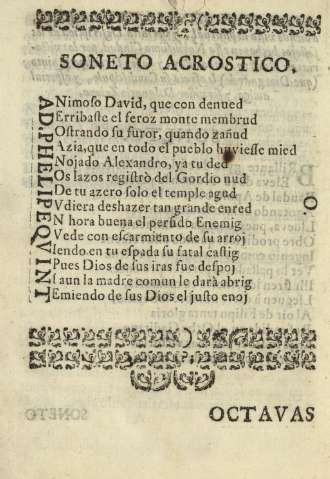 SONETO ACROSTICO.
AD. PHELIPE QVINT
O.
Nimoso David, que con denued
Erribaste el feroz monte membrud
Ostrando su furor, quando zañud
Azia, que en todo el pueblo huviesse mied
Nojado Alexandro, ya tu ded
Os lazos registrò del Gordio nud
De tu azero solo el temple agud
Vdiera deshazer tan grande enred
N hora buena el persido Enemig
Vede con escarmiento de su arroj
Iendo en tu espada su fatal castig
Pues Dios de sus iras fue despoj
I aun la madre comun le darà abrig
Emiendo de sus Dios el justo enoj
OCTAVAS